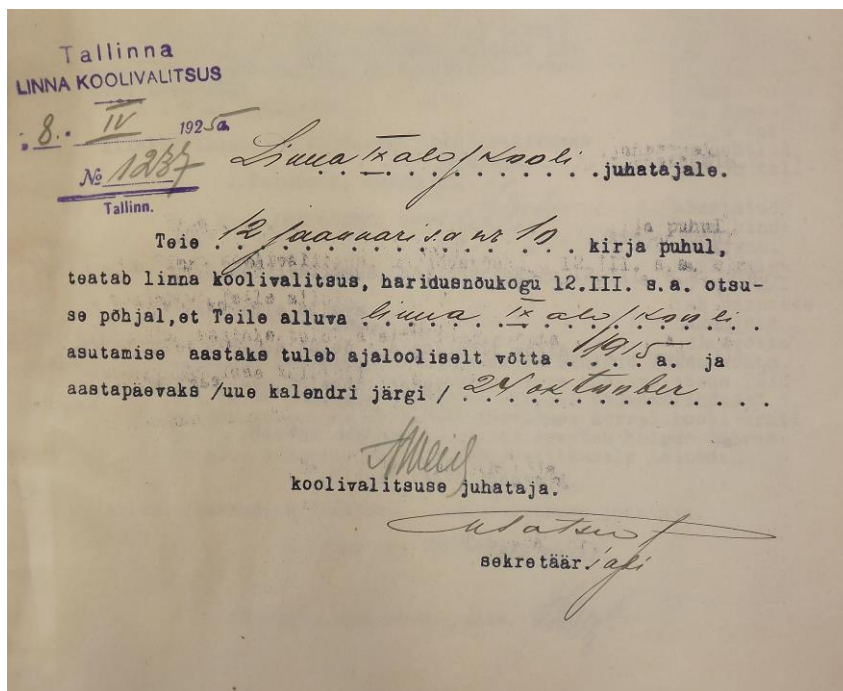 Tallinna
LINNA KOOLIVALITSUS
8. IV 1925 a.
№ 1237
Tallinn.
Linna IX alg. kooli juhatajale.
Teie 12 jaanuari s.a nr 10 kirja puhul,
teatab linna koolivalitsus, haridusnõukogu 12.III. s.a. otsu-
se põhjal,et Teile alluva linna IX alg. kooli
asutamise aastaks tuleb ajalooliselt võtta 1915 a. ja
aastapäevaks /uue kalendri järgi / 24 oktoober
koolivalitsuse juhataja.
sekretäär